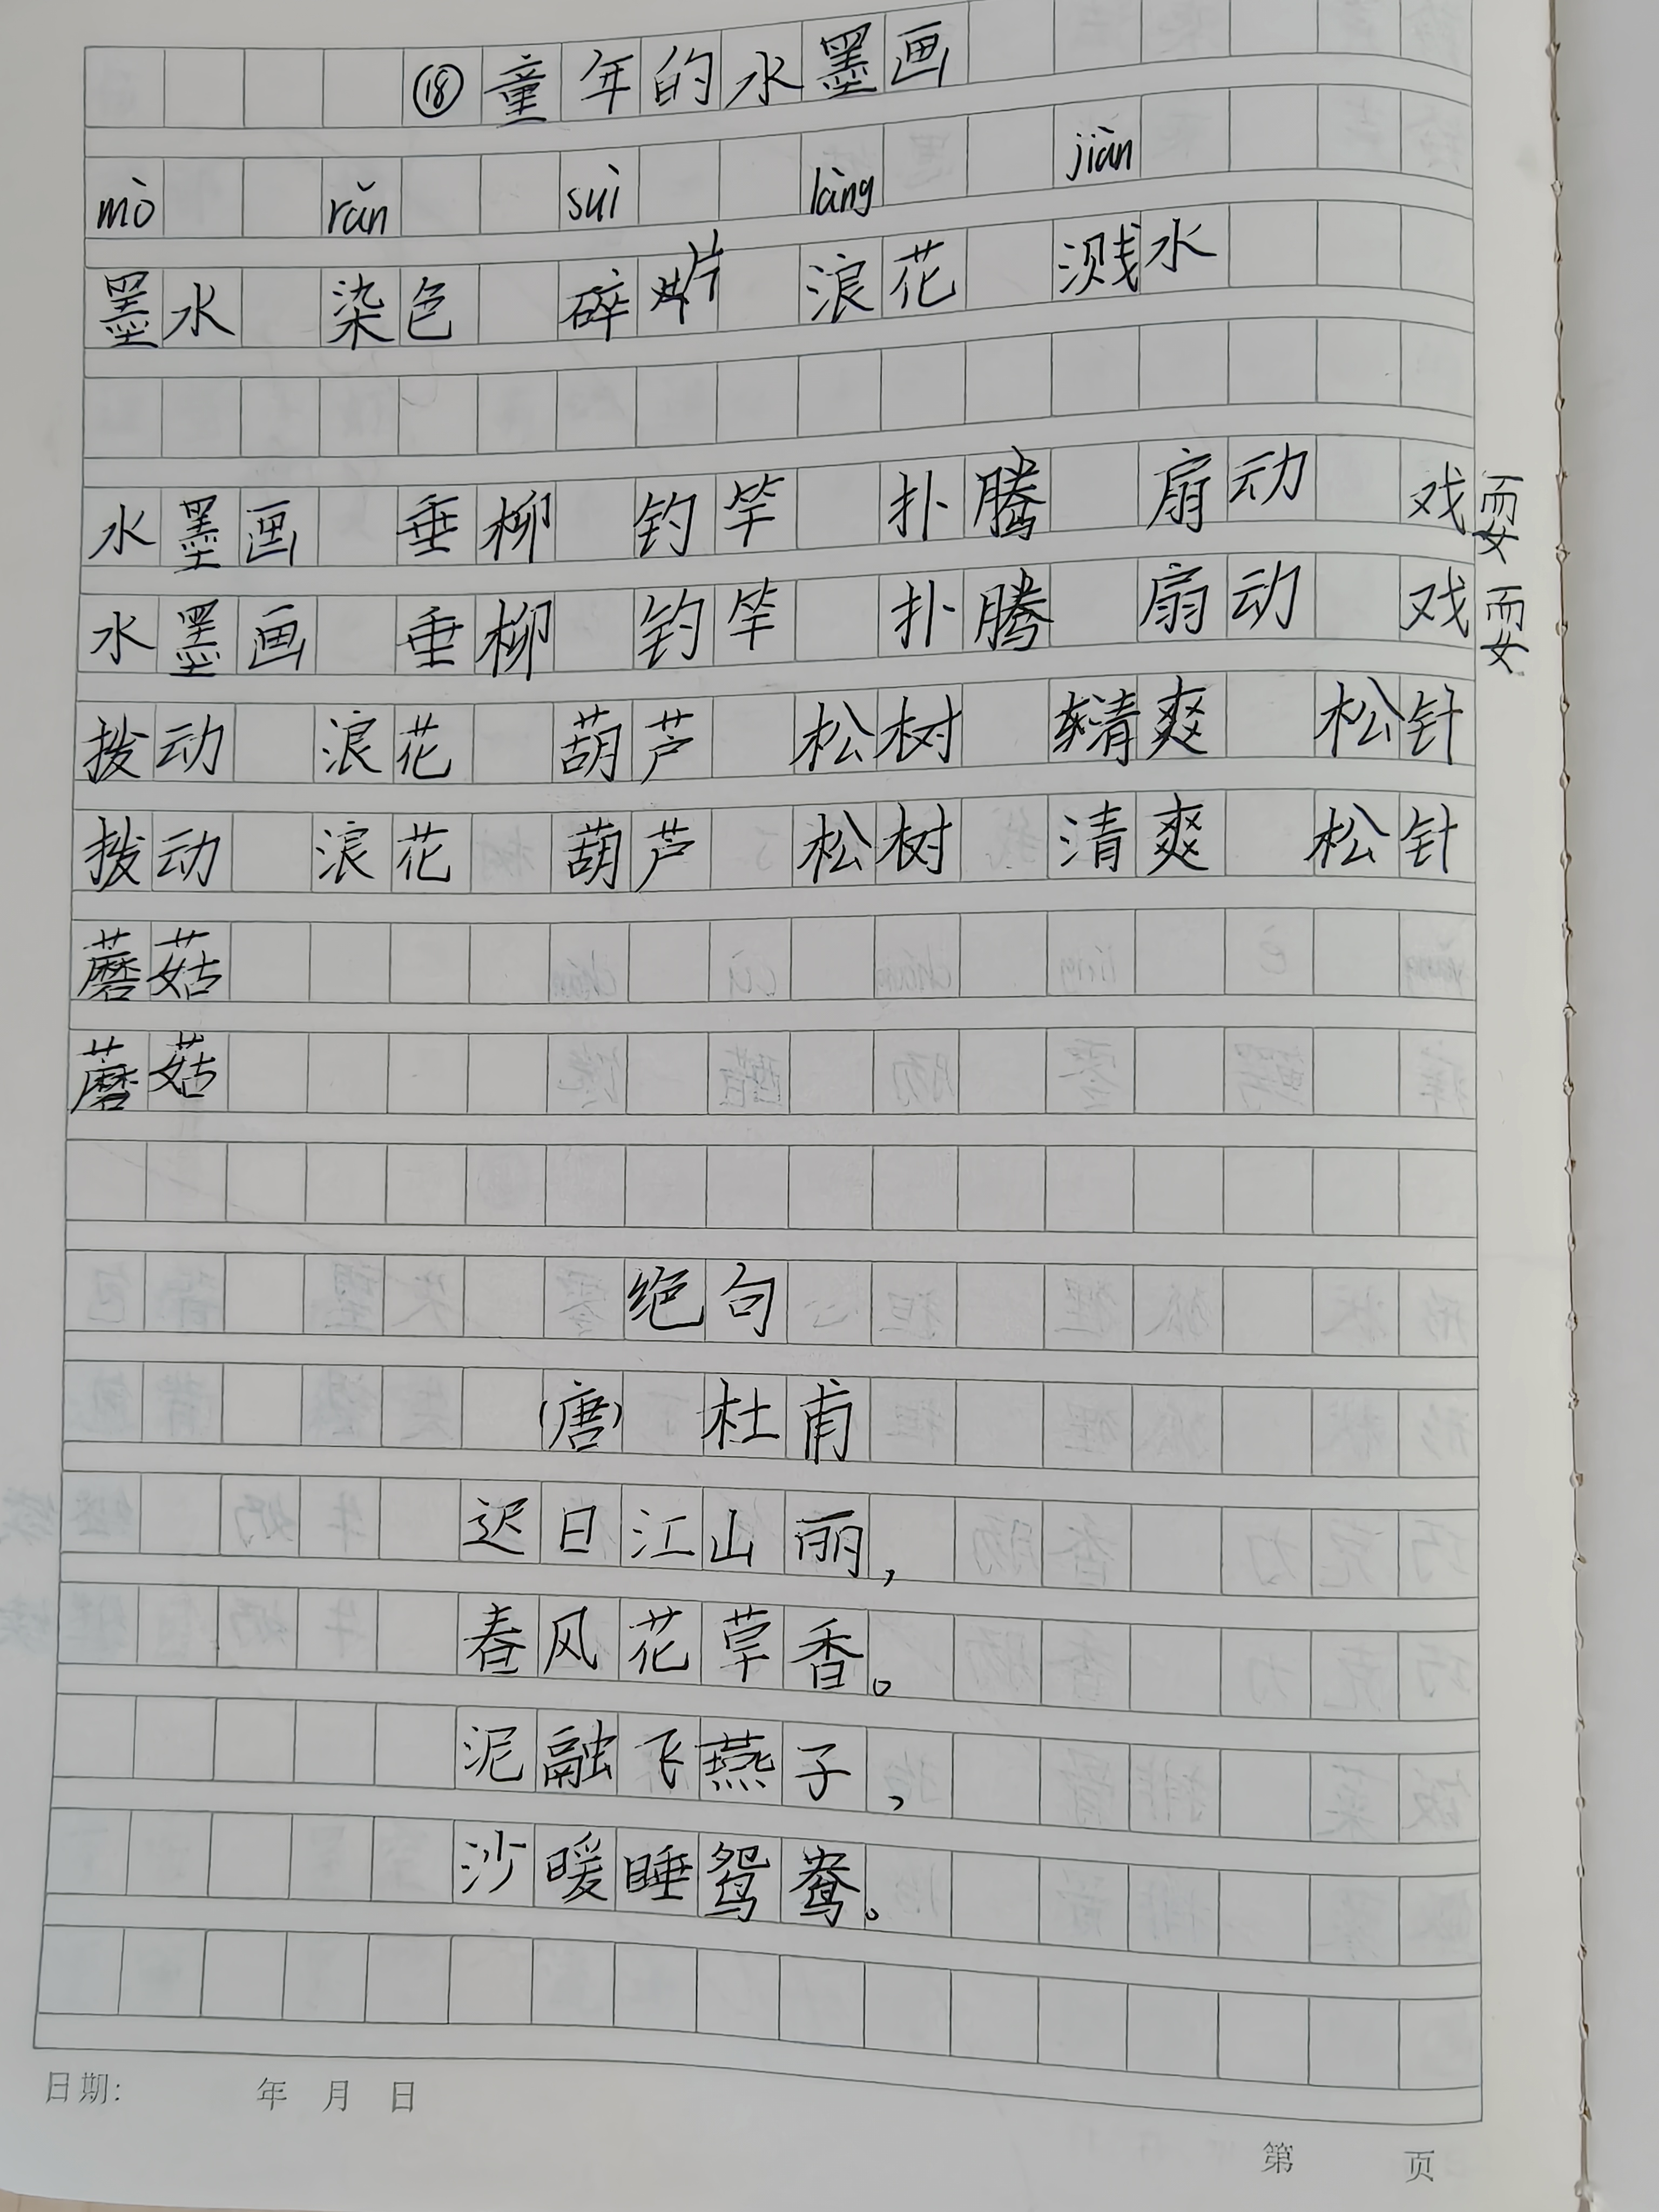 ⑱童年的水墨画
mò rǎn suì làng jiàn
墨水 染色 碎片 浪花 溅水
水墨画 垂柳 钓竿 扑腾 扇动 戏耍
水墨画 垂柳 钓竿 扑腾 扇动 戏耍
拨动 浪花 葫芦 松树 清爽 松针
拨动 浪花 葫芦 松树 清爽 松针
蘑菇
蘑菇
绝句
(唐) 杜甫
迟日江山丽,
春风花草香。
泥融飞燕子,
沙暖睡鸳鸯。
日期: 年 月 日
第 页